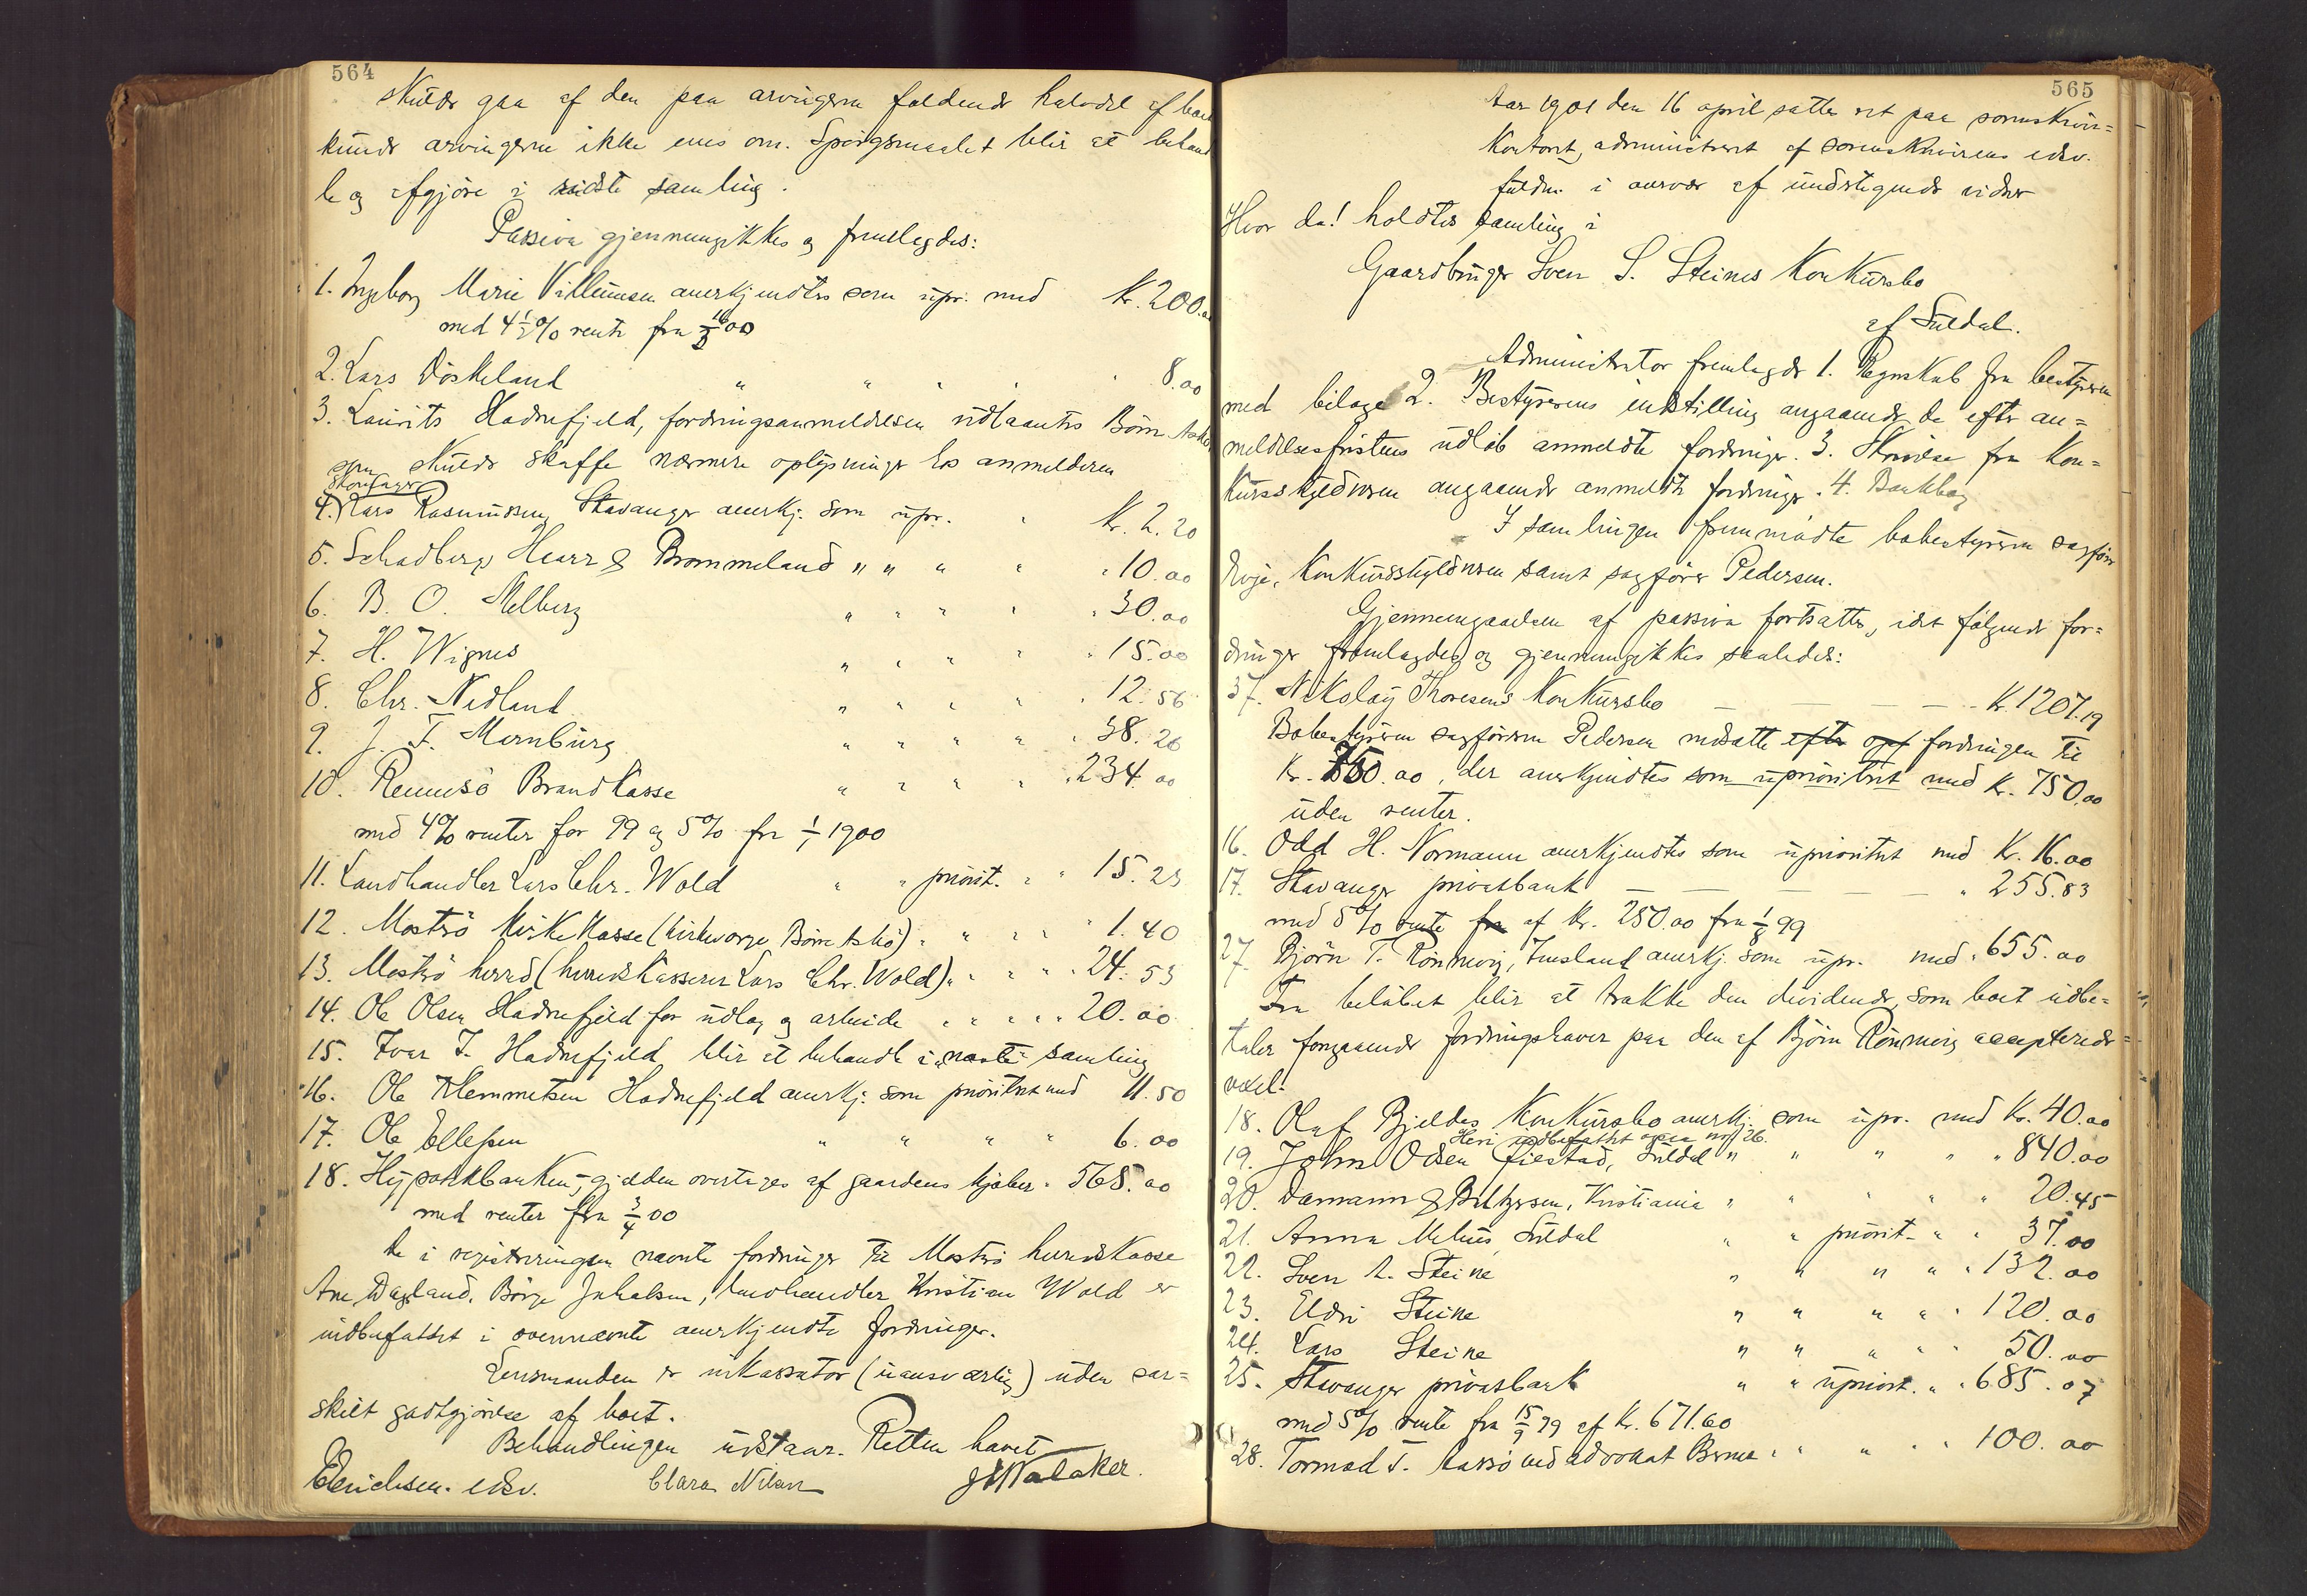 564
skulde gaa af den paa arvingerne faldende halvdel af boet
kunde arvingerne ikke enes om. Spørgsmaalet blir at behand
le og afgjøre i sidste samling.
Passiva gjennemgikkes og fremlagdes:
1. Ingeborg Marie Villumsen anerkjendtes som upr. med Kr. 200.00
med 4½% rente fra 16/8 00
2. Lars Døskeland " " " " " 8.00
3. Laurits Hadnefjeld, fordringsanmeldelsen udlaantes Børre Askø
som skulde skaffe nærmere oplysninger hos anmelderen
4. Lars Rasmussen, Stavanger anerkj. som upr. " Kr. 2.20
5. Schadberg, Hearr & Brommeland " " " " " 10.00
6. B. O. Melberg " " " " " 30.00
7. H. Wignes " " " " " 15.00
8. Chr. Nedland " " " " " 12.56
9. J. F. Mernburg " " " " " 38.26
10. Rennesø Brandkasse " " " " " 234.00
med 4% renter for 99 og 5% fra 1/1 1900
11. Landhandler Lars Chr. Wold " " priorit. " " 15.23
12. Mostrø kirkekasse (kirkeværge Børre Askø) " " " " " 1.40
13. Mostrø herred (herredskasserer Lars Chr. Wold) " " " " " 24.53
14. Ole Olsen Hadnefjeld for udlæg og arbeide " " " " " 20.00
15. Ivar I. Hadnefjeld blir at behandle i næste samling
16. Ole Klemmetsen Hadnefjeld anerkj. som prioritert med 11.50
17. Ole Ellefsen " " " " 6.00
18. Hypothekbanken, gjælden overtages af gaardens kjøber " 568.00
med renter fra 3/4 00
De i registreringen nævnte fordringer til Mostrø herredskasse
Ane Dagsland, Børge Jakobsen, landhandler Kristian Wold er
indbefattet i ovennævnte anerkjendte fordringer.
Lensmanden er inkassator (uansvarlig) uden sær=
skilt godtgjørelse af boet.
Behandlingen udstaar. Retten hævet
Erichsen. edsv. Clara Nilsen JWalaker.
565
Aar 1901 den 16 april sattes ret paa sorenskriver=
kontoret, administreret af sorenskriverens edsv.
fuldm. i overvær af undertegnede vidner
Hvor da! holdtes samling i
Gaardbruger Sven S. Steines Konkursbo
af Suldal.
Administrator fremlagde 1. Regnskab fra bestyreren
med bilage 2. Bestyrerens indstilling angaaende de efter an=
meldelsesfristens udløb anmeldte fordringer. 3. Skrivelse fra kon=
kursskyldneren angaaende anmeldte fordringer. 4. Bankbog
I samlingen fremmødte bobestyreren sagfører
Køje, konkursskyldneren samt sagfører Pedersen.
Gjennemgaaelsen af passiva fortsattes, idet følgende for=
dringer fremlagdes og gjennemgikkes saaledes:
37. Nikolay Thoresens Konkursbo — — — — Kr. 1207.19
Bobestyreren sagføreren Pedersen nedsatte efter opf fordringen til
Kr. 750.00, der anerkjendtes som uprioriteret med Kr. 750.00
uden renter.
16. Odd H. Normann anerkjendtes som uprioritert med Kr. 16.00
17. Stavanger privatbank — — — — " 255.83
med 5% rente fra af Kr. 250.00 fra 1/8 99
27. Bjørn T. Rønnevig, Imsland anerkj. som upr. med " 655.00
Fra beløbet blir at trække den dividende, som boet udbe=
taler foregaaende fordringshaver paa den af Bjørn Rønnevig accepterede
vexel.
18. Olaf Bjeldes Konkursbo anerkj. som upr. med Kr. 40.00
Heri indbefattet ogsaa no 26.
19. John Odsen Fiestad, Suldal " " " " " 840.00
20. Damann & Biltzersen, Kristiania " " " " " 20.45
21. Anna Mehus, Suldal " " priorit. " " 37.00
22. Sven L. Steine " " " " " 132.00
23. Eldri Steine " " " " " 120.00
24. Lars Steine " " " " " 50.00
25. Stavanger privatbank " " upriorit. " " 685.07
med 5% rente fra 15/9 99 af Kr. 671.60
28. Tormod T. ved advokat Berner " " " " " 100.00